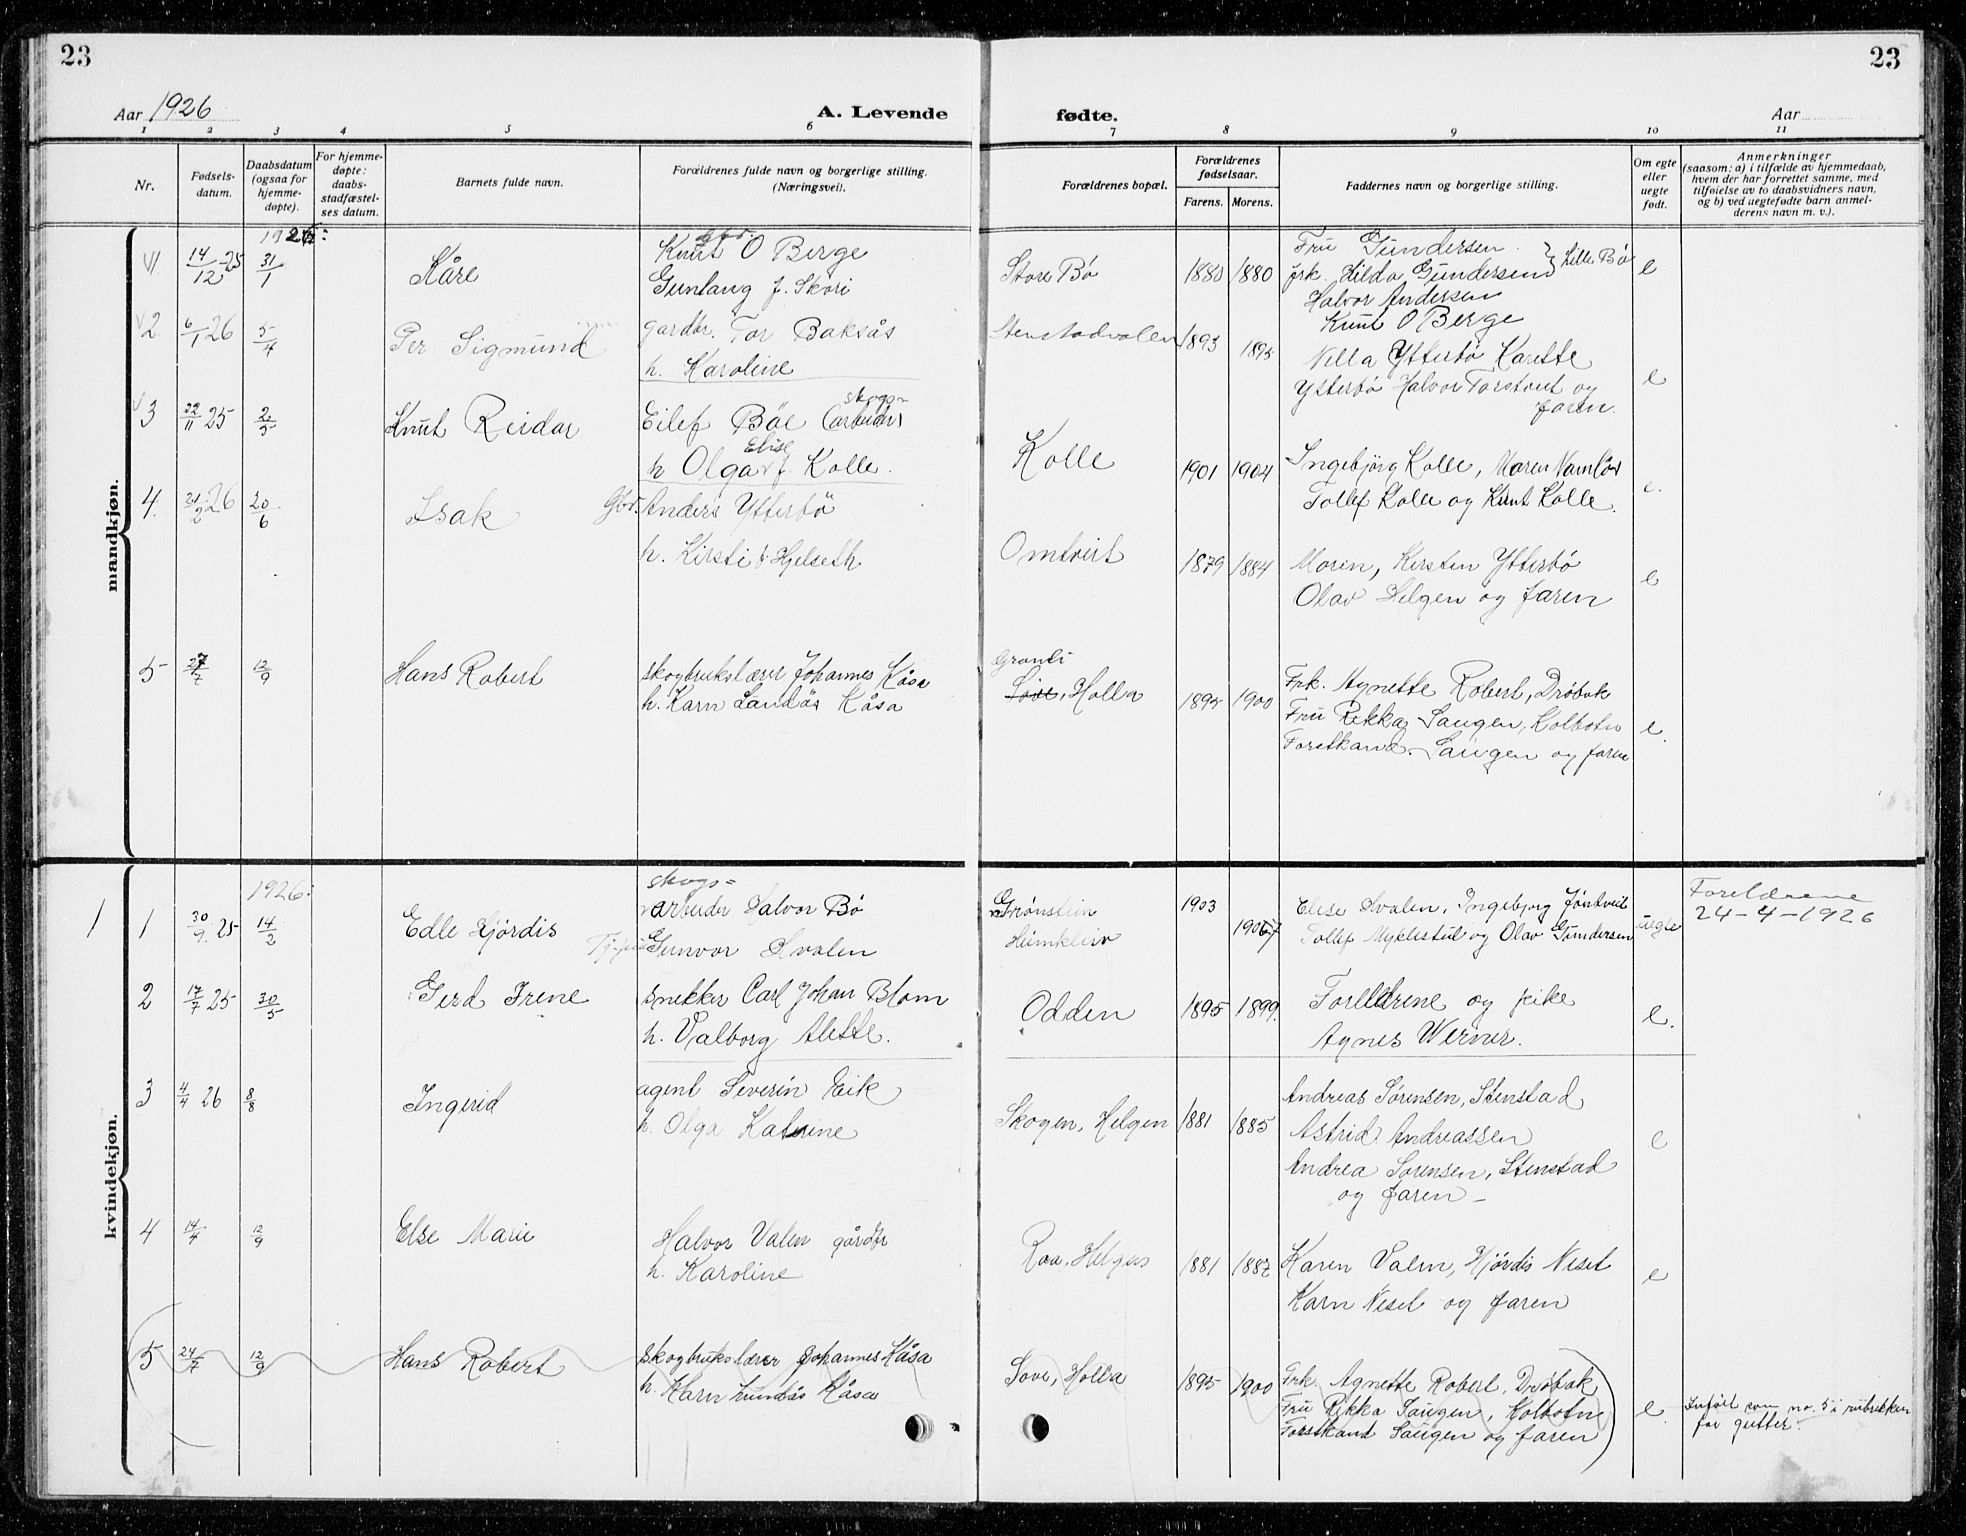 23
23
Aar 1926
A. Levende
fødte.
Aar
1 2 3 4 5 6 7 8 9 10 11
Nr.
Fødsels-
datum.
Daabsdatum
(ogsaa for
hjemme-
døpte).
For hjemme-
døpte:
daabs-
stadfæstel-
ses datum.
Barnets fulde navn.
Forældrenes fulde navn og borgerlige stilling.
(Næringsvei).
Forældrenes bopæl.
Forældrenes
fødselsaar.
Farens. Morens.
Faddernes navn og borgerlige stilling.
Om egte
eller
uegte
født.
Anmerkninger
(saasom: a) i tilfælde av hjemmedaab,
hvem der har forrettet samme, med
tilføielse av to daabsvidners navn,
og b) ved uegtefødte barn anmel-
derens navn m. v.).
mandkjøn.
1926:
1 14/12 25 31/1 Kåre
gbr.
Knut O Berge
Gunlaug f. Skori
Store Bø 1880 1880
Fru Gundersen
frk. Hilda Gundersen } Lille Bø
Halvor Andersen
Knut O Berge
e
2 6/1 26 5/4 Per Sigmund
gardbr. Tor Baksås
h. Karoline
Stenstadvalen 1893 1895
Nella Ytterbø Karette
Ytterbø Halvor Torstveit og
faren.
e
3 22/11 25 2/5 Knut Reidar
skogs-
Eilef Bøe (arbeider)
Elise
h Olga f. Kolle.
Kolle 1901 1904
Ingebjørg Kolle, Maren Namløs
Tollef Kolle og Knut Kolle.
e.
4. 21/2 26 20/6 Isak
Gbr. Anders Ytterbø
h. Kirsti f. Hjelseth
Omtveit 1879 1884
Maren, Kirsten Ytterbø
Olav Helgen og faren
e
5 27/7 12/9 Hans Robert
skogbrukslærer Johannes Kåsa
h. Karn Landås Kåsa
Granli
Søve, Holla 1895 1900
Frk. Agnette Robert, Drøbak
Fru Rekka Saugen, Kolbotn
Forstkand. Saugen og faren
e.
kvindekjøn.
1926:
1 1 30/9. 25 14/2 Edle Hjørdis
skogs=
arbeider Halvor Bø
Gunvor Hvalen
Grønstein
Humkleiv
1903 1907
Elise Hvalen, Ingebjorg Jøntveit
Tollef Myklestul og Olav Gundersen
uegte
Foreldrene
24-4-1926
2 17/7 25 30/5 Gerd Irene
snekker Carl Johan Blom
h. Valborg Alette.
Odden 1895 1899.
Foreldrene og pike
Agnes Werner.
e.
3 4/4 26 8/8 Ingerid
agent Severin Eik
h. Olga Katrine
Skogen, Helgen 1881 1885
Andreas Sørensen, Stenstad
Astrid Andreassen
Andrea Sorensen, Stenstad
og faren –
e
4 14/4 12/9 Else Marie
Halvor Valen gårdbr
h. Karoline
Roa, Helgen 1881 1882
Karen Valen, Hjørdis Neset
Karn Neset og faren
e
5 24/7 12/9 Hans Robert
skogbrukslærer Johannes Kåsa
h. Karn Lundås Kåsa
Sove, Holla 1895 1900
Frk. Agnette Robert, Drøbak
Fru Rekka Saugen, Kolbotn
Forstkand Saugen og faren
e
Infört som no. 5 i rubrikken
for gutter.